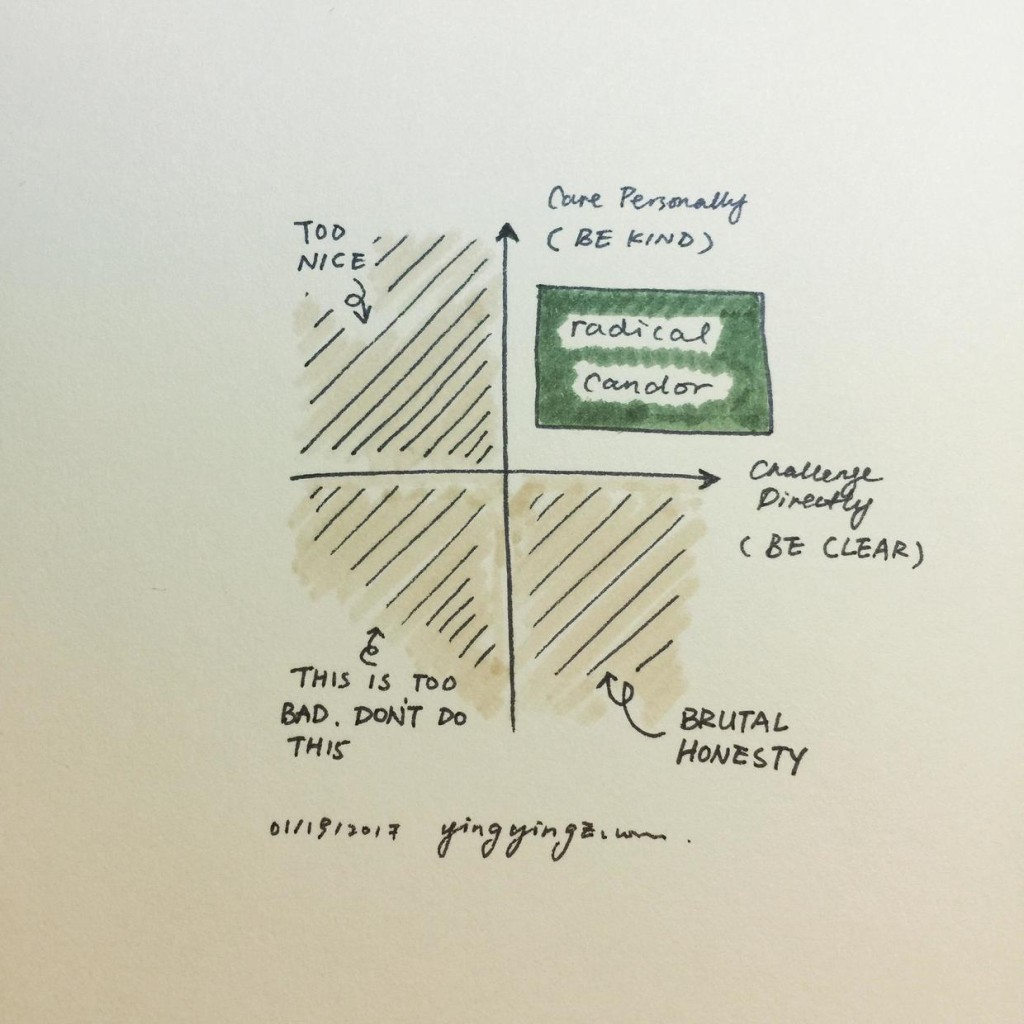 TOO
NICE
Care Personally
(BE KIND)
radical
candor
Challenge
Directly
(BE CLEAR)
THIS IS TOO
BAD. DON'T DO
THIS
BRUTAL
HONESTY
01/19/2017 yingyingz.com